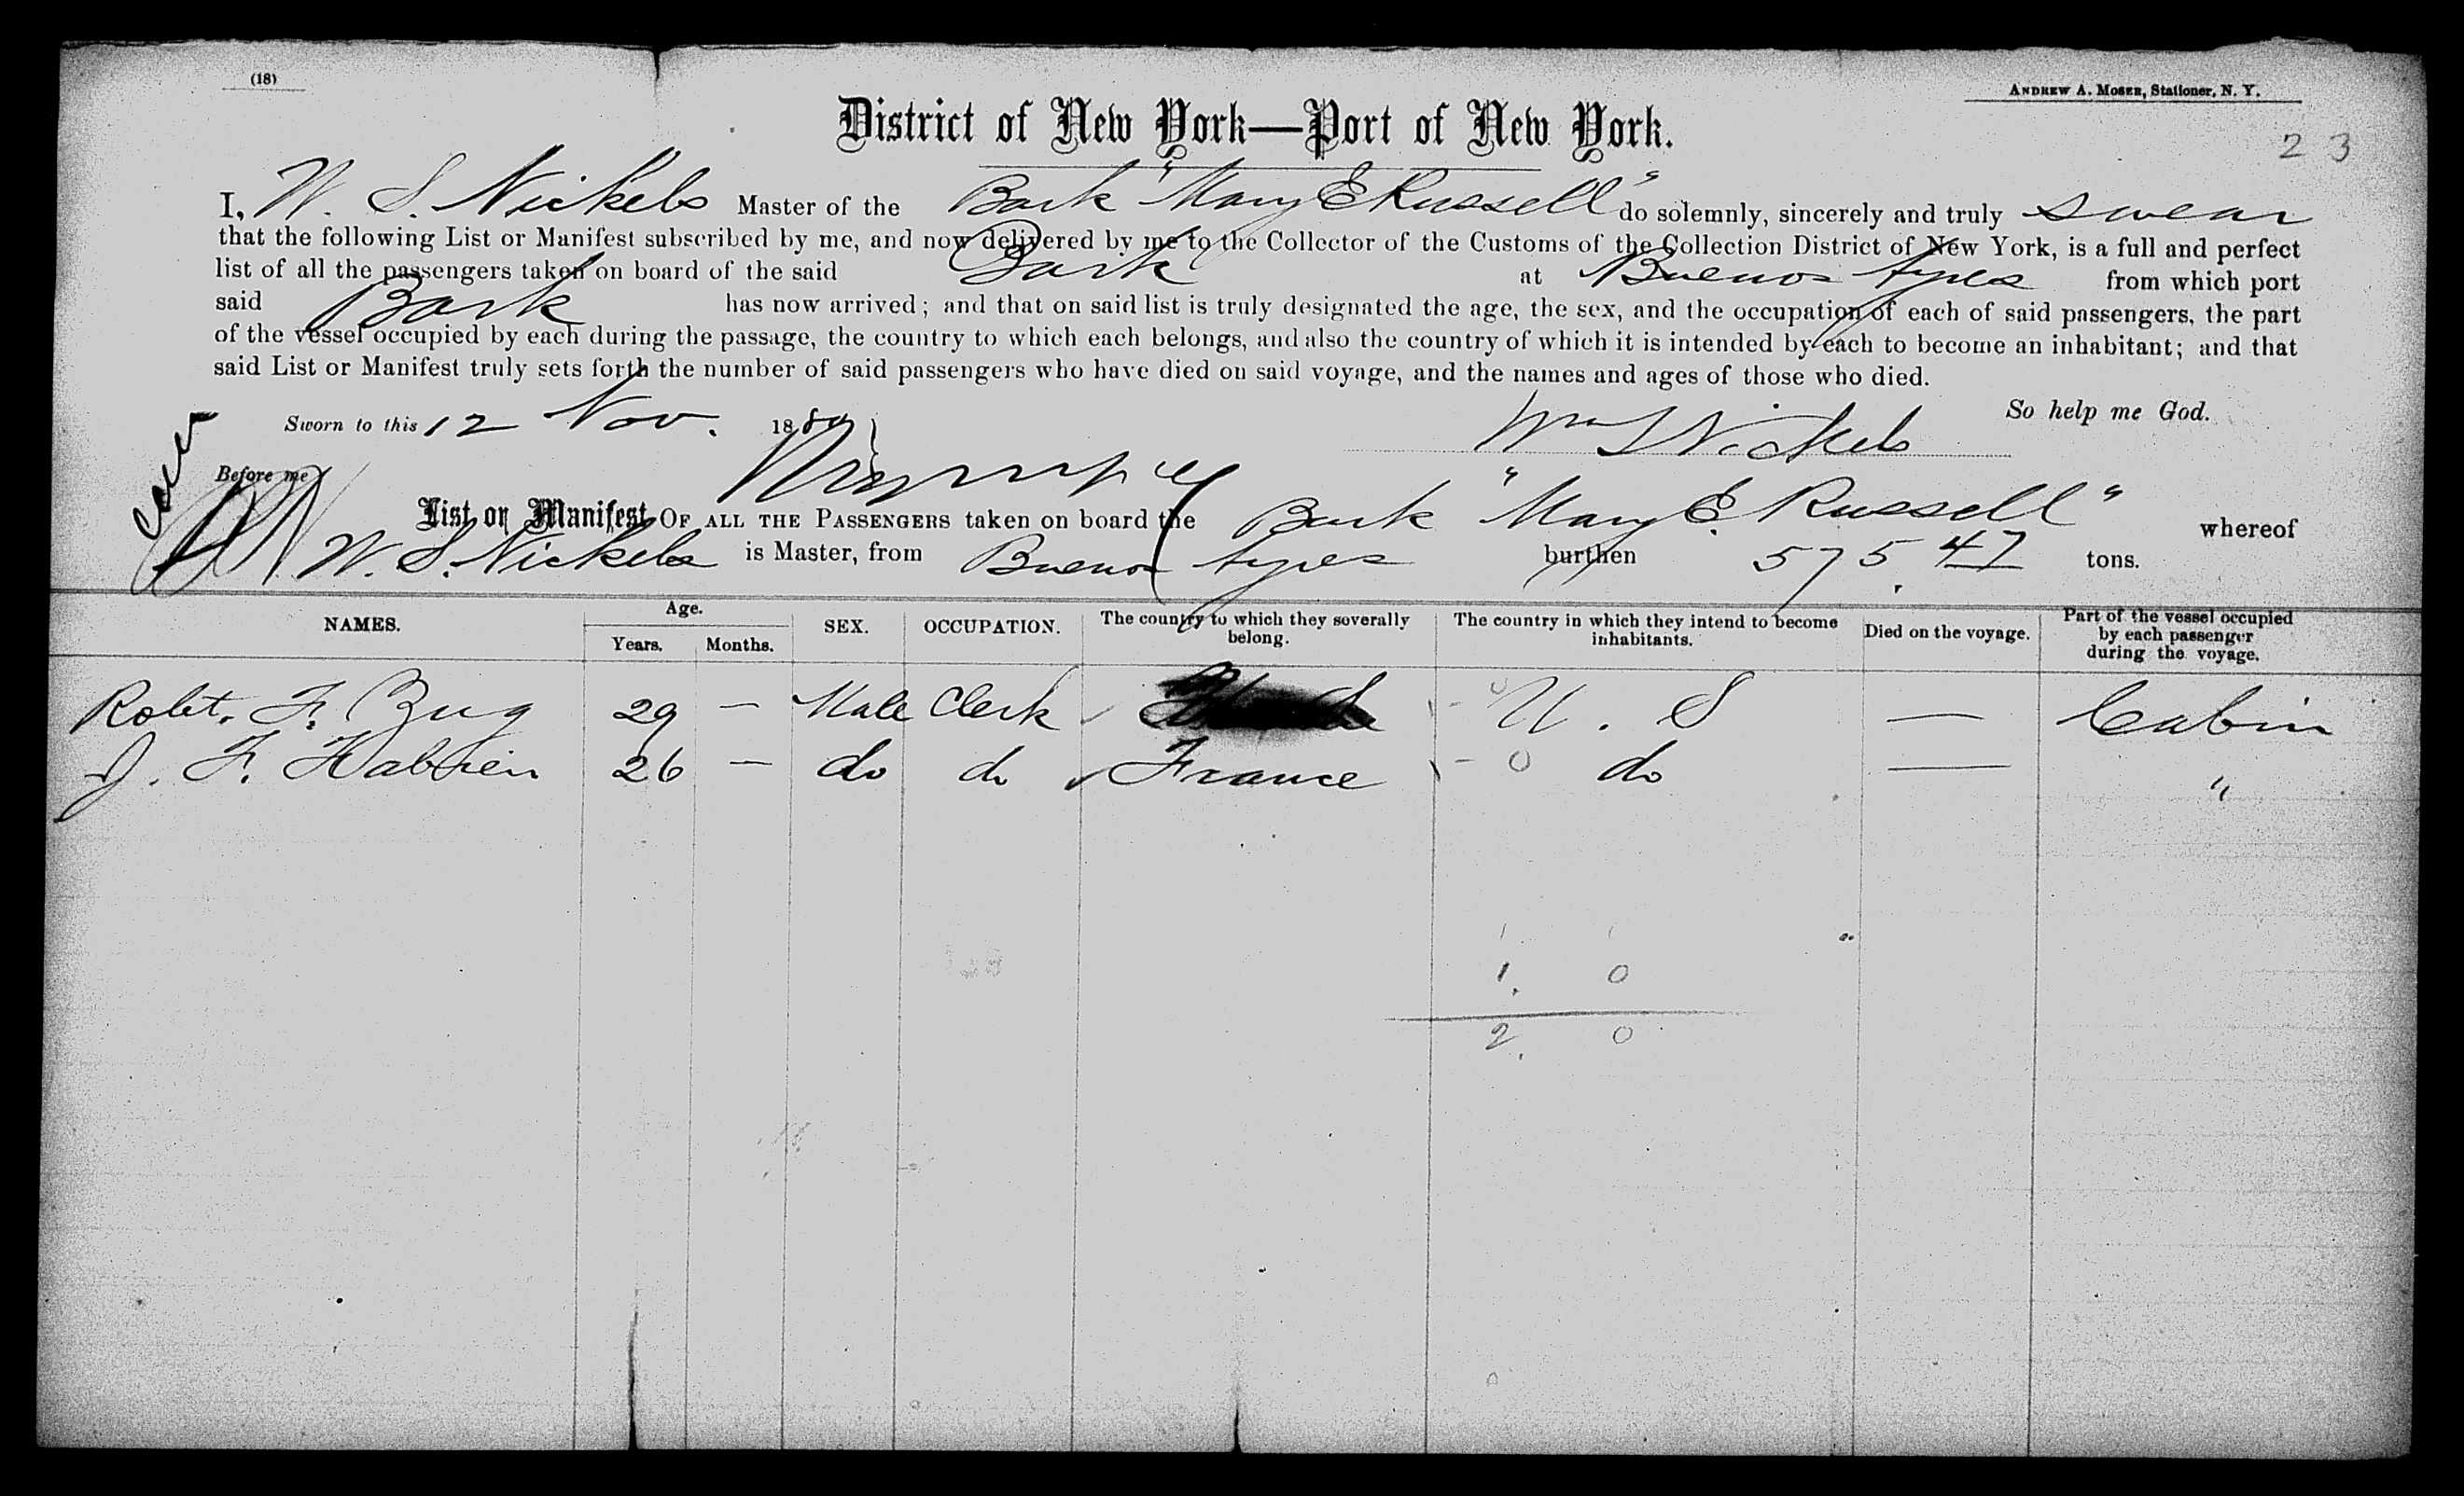 (18)
ANDREW A. MOSER, Stationer, N. Y.
District of New York—Port of New York.
2 3
I, W. S. Nickels Master of the Bark "Mary E Russell" do solemnly, sincerely and truly swear
that the following List or Manifest subscribed by me, and now delivered by me to the Collector of the Customs of the Collection District of New York, is a full and perfect
list of all the passengers taken on board of the said Bark at Buenos Ayres from which port
said Bark has now arrived; and that on said list is truly designated the age, the sex, and the occupation of each of said passengers, the part
of the vessel occupied by each during the passage, the country to which each belongs, and also the country of which it is intended by each to become an inhabitant; and that
said List or Manifest truly sets forth the number of said passengers who have died on said voyage, and the names and ages of those who died.
So help me God.
Sworn to this 12 Nov. 18
Wm S Nickels
Before me
List or Manifest OF ALL THE PASSENGERS taken on board the Bark "Mary E. Russell" whereof
W. S. Nickels is Master, from Buenos Ayres burthen 575.47 tons.
NAMES. Age. Years. Months. SEX. OCCUPATION. The country to which they severally belong. The country in which they intend to become inhabitants. Died on the voyage. Part of the vessel occupied by each passenger during the voyage.
Robt. F. Zug 29 — Male Clerk U. S — Cabin
J. F. 26 — do do France 0 do — "
1 0
2 0